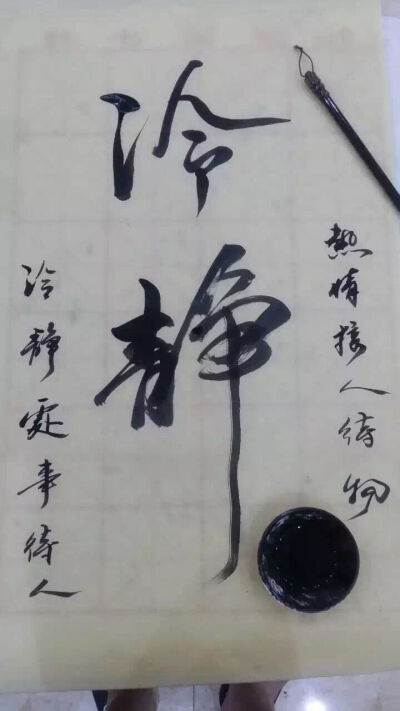 熱情接人待物
冷静
冷静處事待人